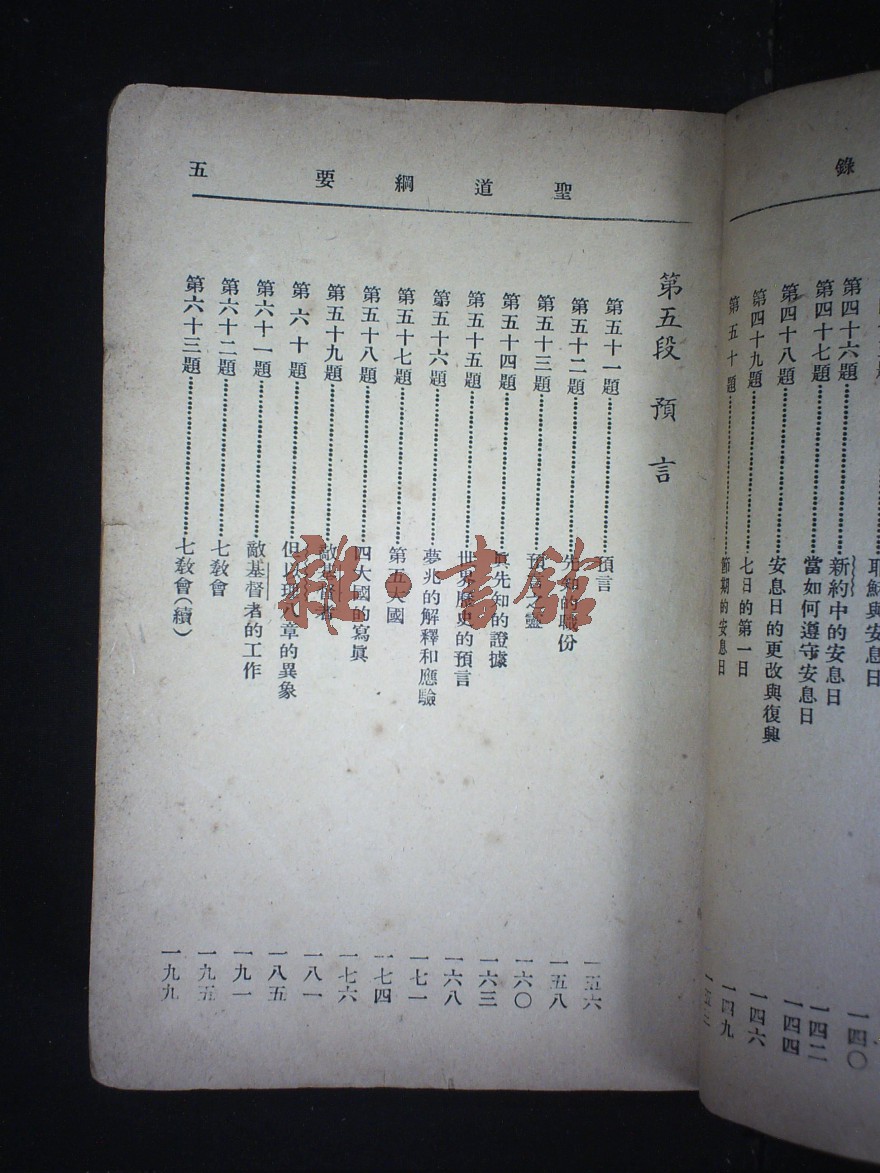 錄
第四十六題 新約中的安息日 一四〇
第四十七題 當如何遵守安息日 一四二
第四十八題 安息日的更改與復興 一四四
第四十九題 七日的第一日 一四六
第五十題 節期的安息日 一四九
聖道綱要 五
第五段 預言
第五十一題 預言 一五六
第五十二題 先知的職份 一五八
第五十三題 預言之靈 一六〇
第五十四題 眞先知的證據 一六三
第五十五題 世界歷史的預言 一六八
第五十六題 夢兆的解釋和應驗 一七一
第五十七題 第五大國 一七四
第五十八題 四大國的寫眞 一七六
第五十九題 敵基督者 一八一
第六十題 但以理八章的異象 一八五
第六十一題 敵基督者的工作 一九一
第六十二題 七敎會 一九五
第六十三題 七敎會(續) 一九九
雜·書館